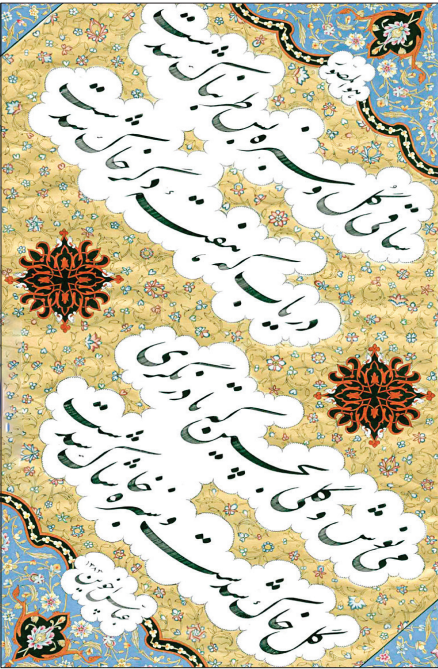 هوالمصور
ساقی گل و سبزه بس طربناک شدست
دریاب که هفته دگر خاک شدست
می نوش و گلی بچین که تا درنگری
گل خاک شدست و سبزه خاشاک شدست
عباس اخوین